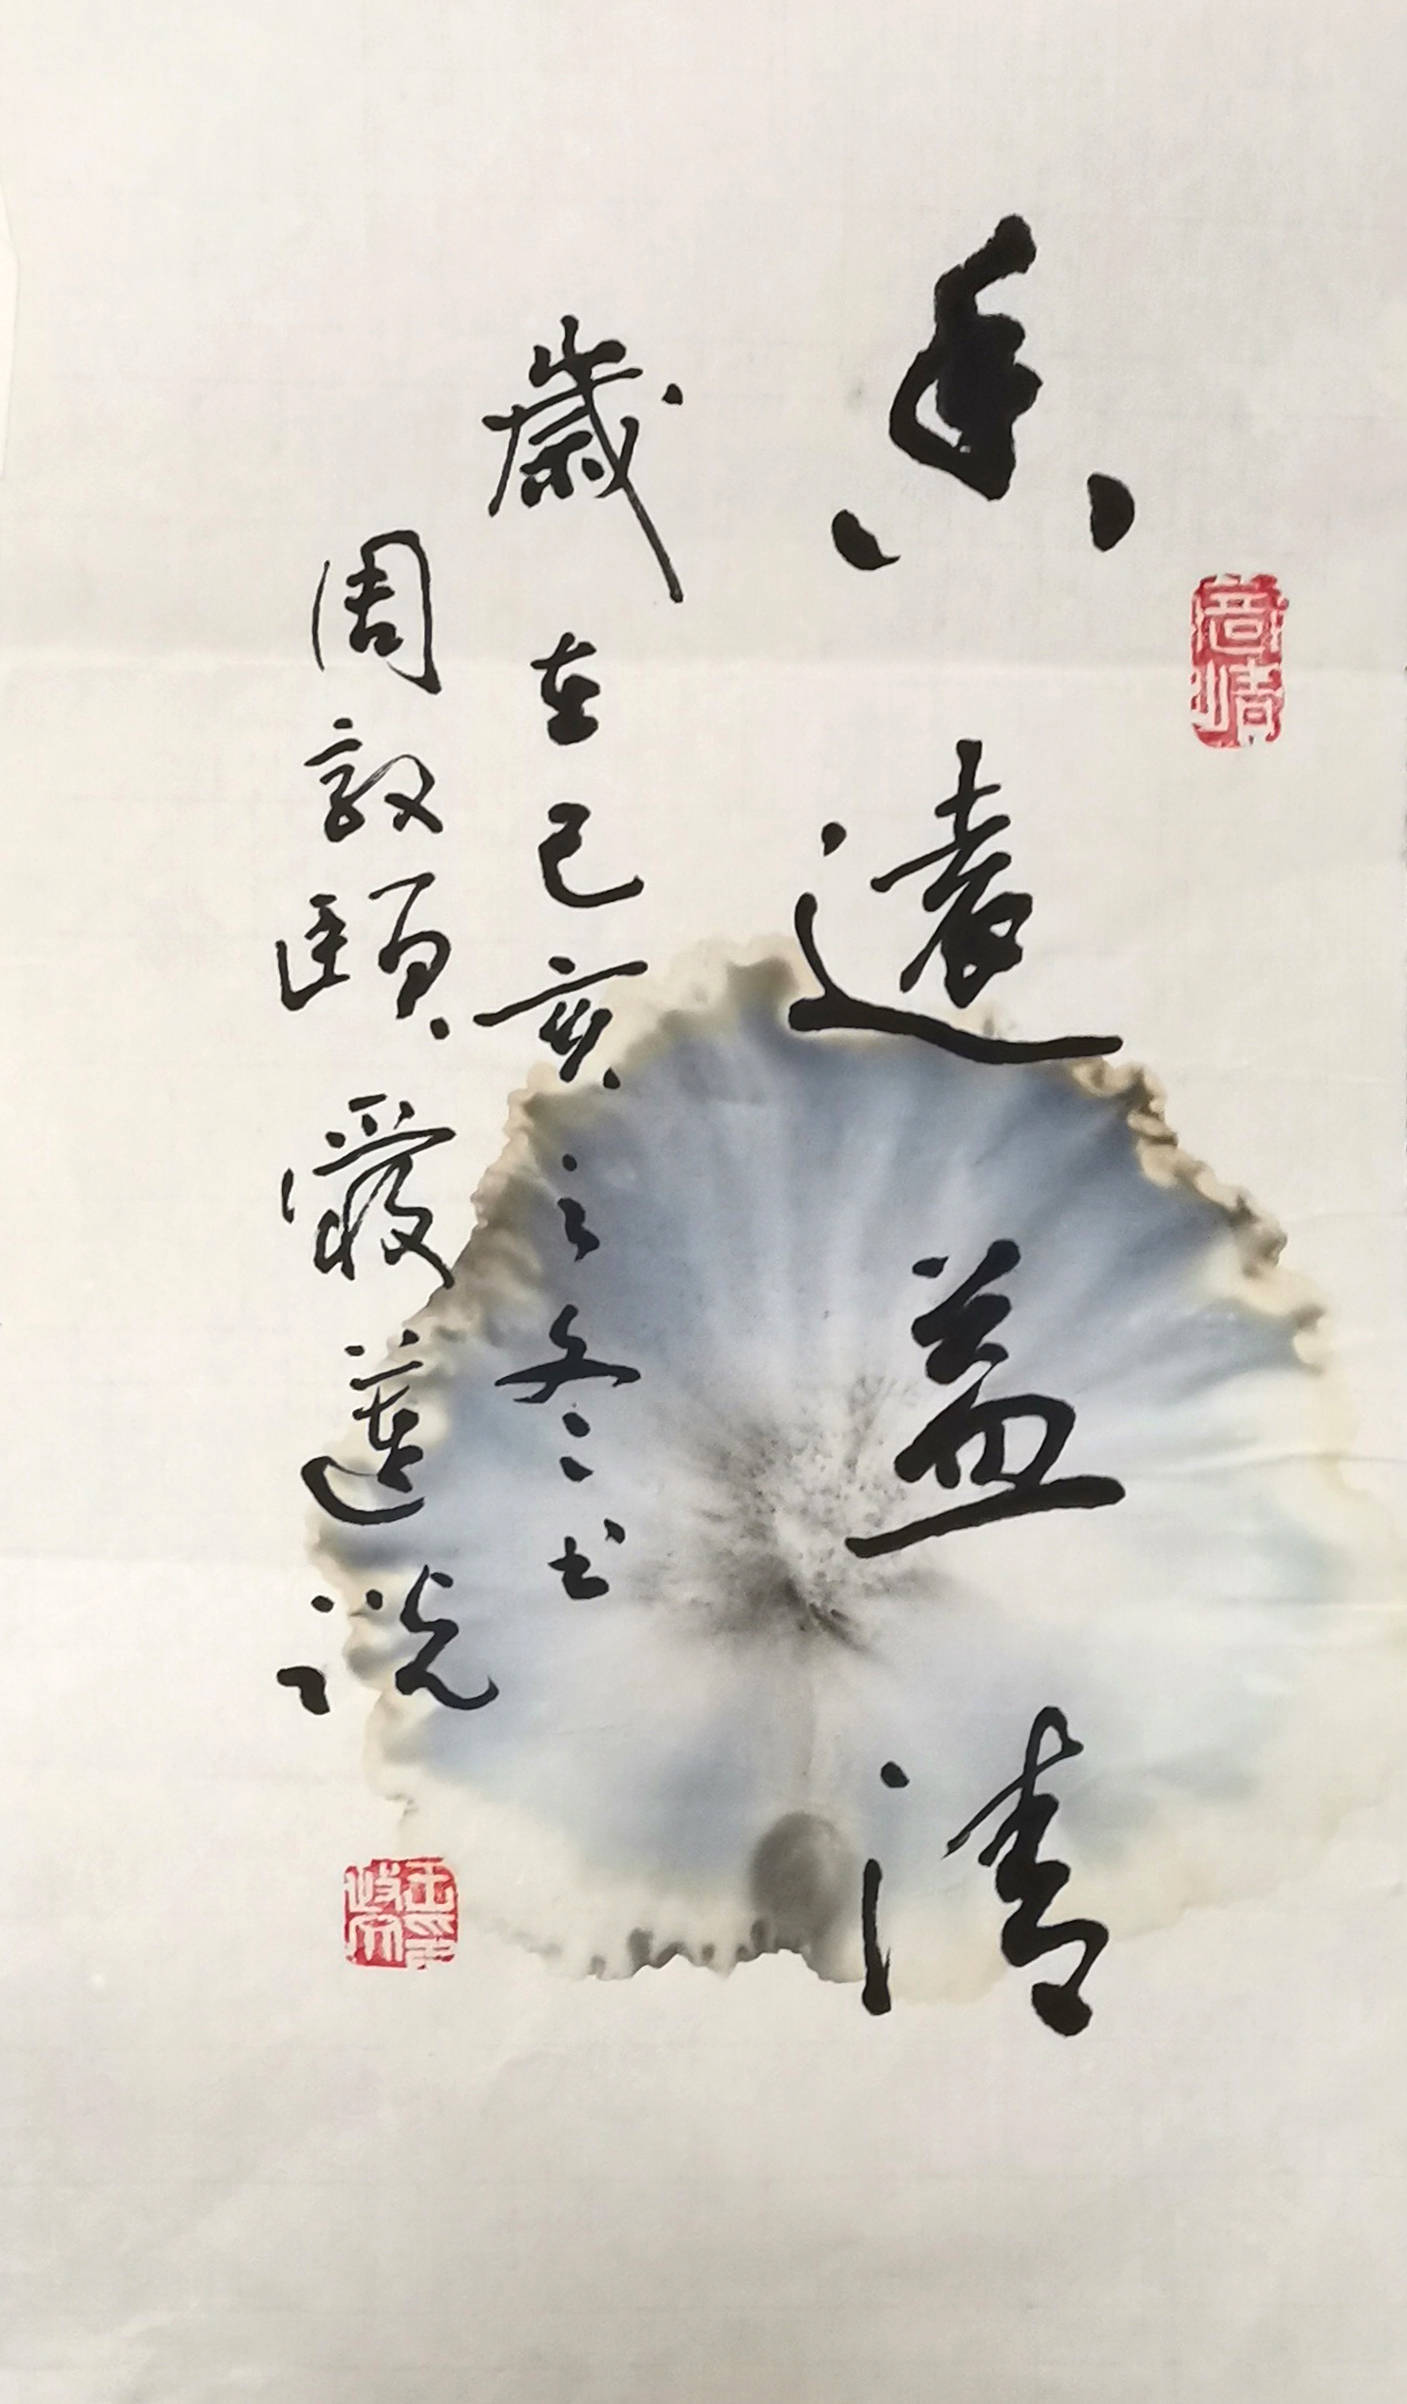 香遠益清
歲在己亥之冬書
周敦頤愛蓮説